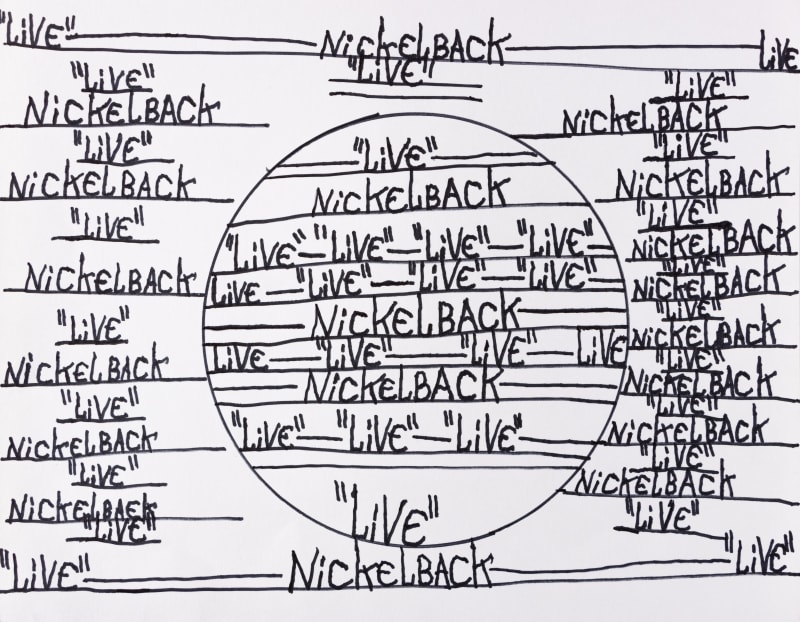 "LiVE" NickELBACK LiVE
"LiVE"
"LiVE"
NickELBACK
"LiVE"
NickELBACK
"LiVE"
NickELBACK
"LiVE"
NickELBACK
"LiVE"
NickELBACK
"LiVE"
NickELBAEK
"LiVE"
"LiVE"
NickELBACK
"LiVE" "LiVE" "LiVE" "LiVE"
LiVE "LiVE" "LiVE" "LiVE"
NickELBACK
LiVE "LiVE "LiVE" LiVE
NickELBACK
"LiVE" "LiVE" "LiVE"
"LiVE"
"LiVE"
NickELBACK
"LiVE"
NickELBACK
"LiVE"
NickELBACK
"LiVE"
NickELBACK
"LiVE
NickELBACK
"LiVE"
NickELBACK
"LiVE"
NickELBACK
"LiVE"
NickELBACK
"LiVE"
"LiVE" NickELBACK "LiVE"